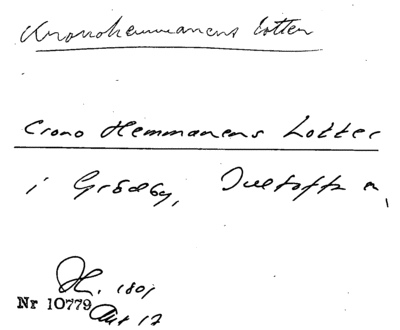 Kronohemmanens Lotter
Crono Hemmanens Lotter
i Grödby,
1801
Nr 10779 Akt 12